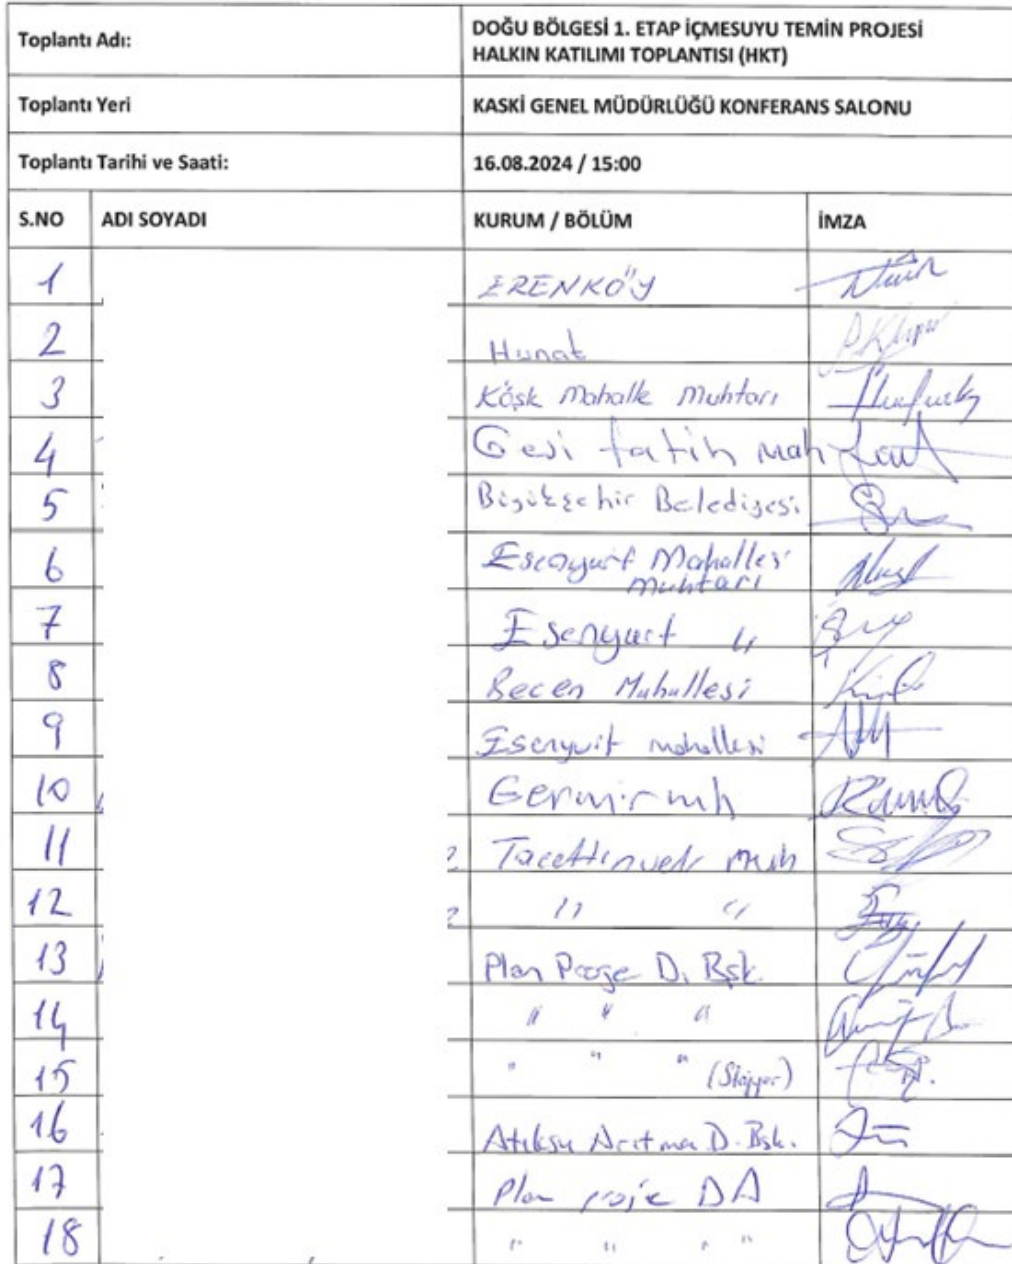 Toplantı Adı:
DOĞU BÖLGESİ 1. ETAP İÇMESUYU TEMİN PROJESİ
HALKIN KATILIMI TOPLANTISI (HKT)
Toplantı Yeri
KASKİ GENEL MÜDÜRLÜĞÜ KONFERANS SALONU
Toplantı Tarihi ve Saati:
16.08.2024 / 15:00
S.NO ADI SOYADI KURUM / BÖLÜM İMZA
1 ERENKÖY
2 Hunat
3 Köşk Mahalle Muhtarı
4 Gesi fatih mah
5 Büyükşehir Belediyesi
6 Esenyurt Mahallesi
muhtarı
7 Esenyurt "
8 Becen Mahallesi
9 Esenyurt mahallesi
10 Germir mh
11 Tacettinveli mah
12 " "
13 Plan Proje D. Bşk.
14 " " "
15 " " " (Stajyer)
16 Atıksu Arıtma D. Bşk.
17 Plan proje DA
18 " " " "